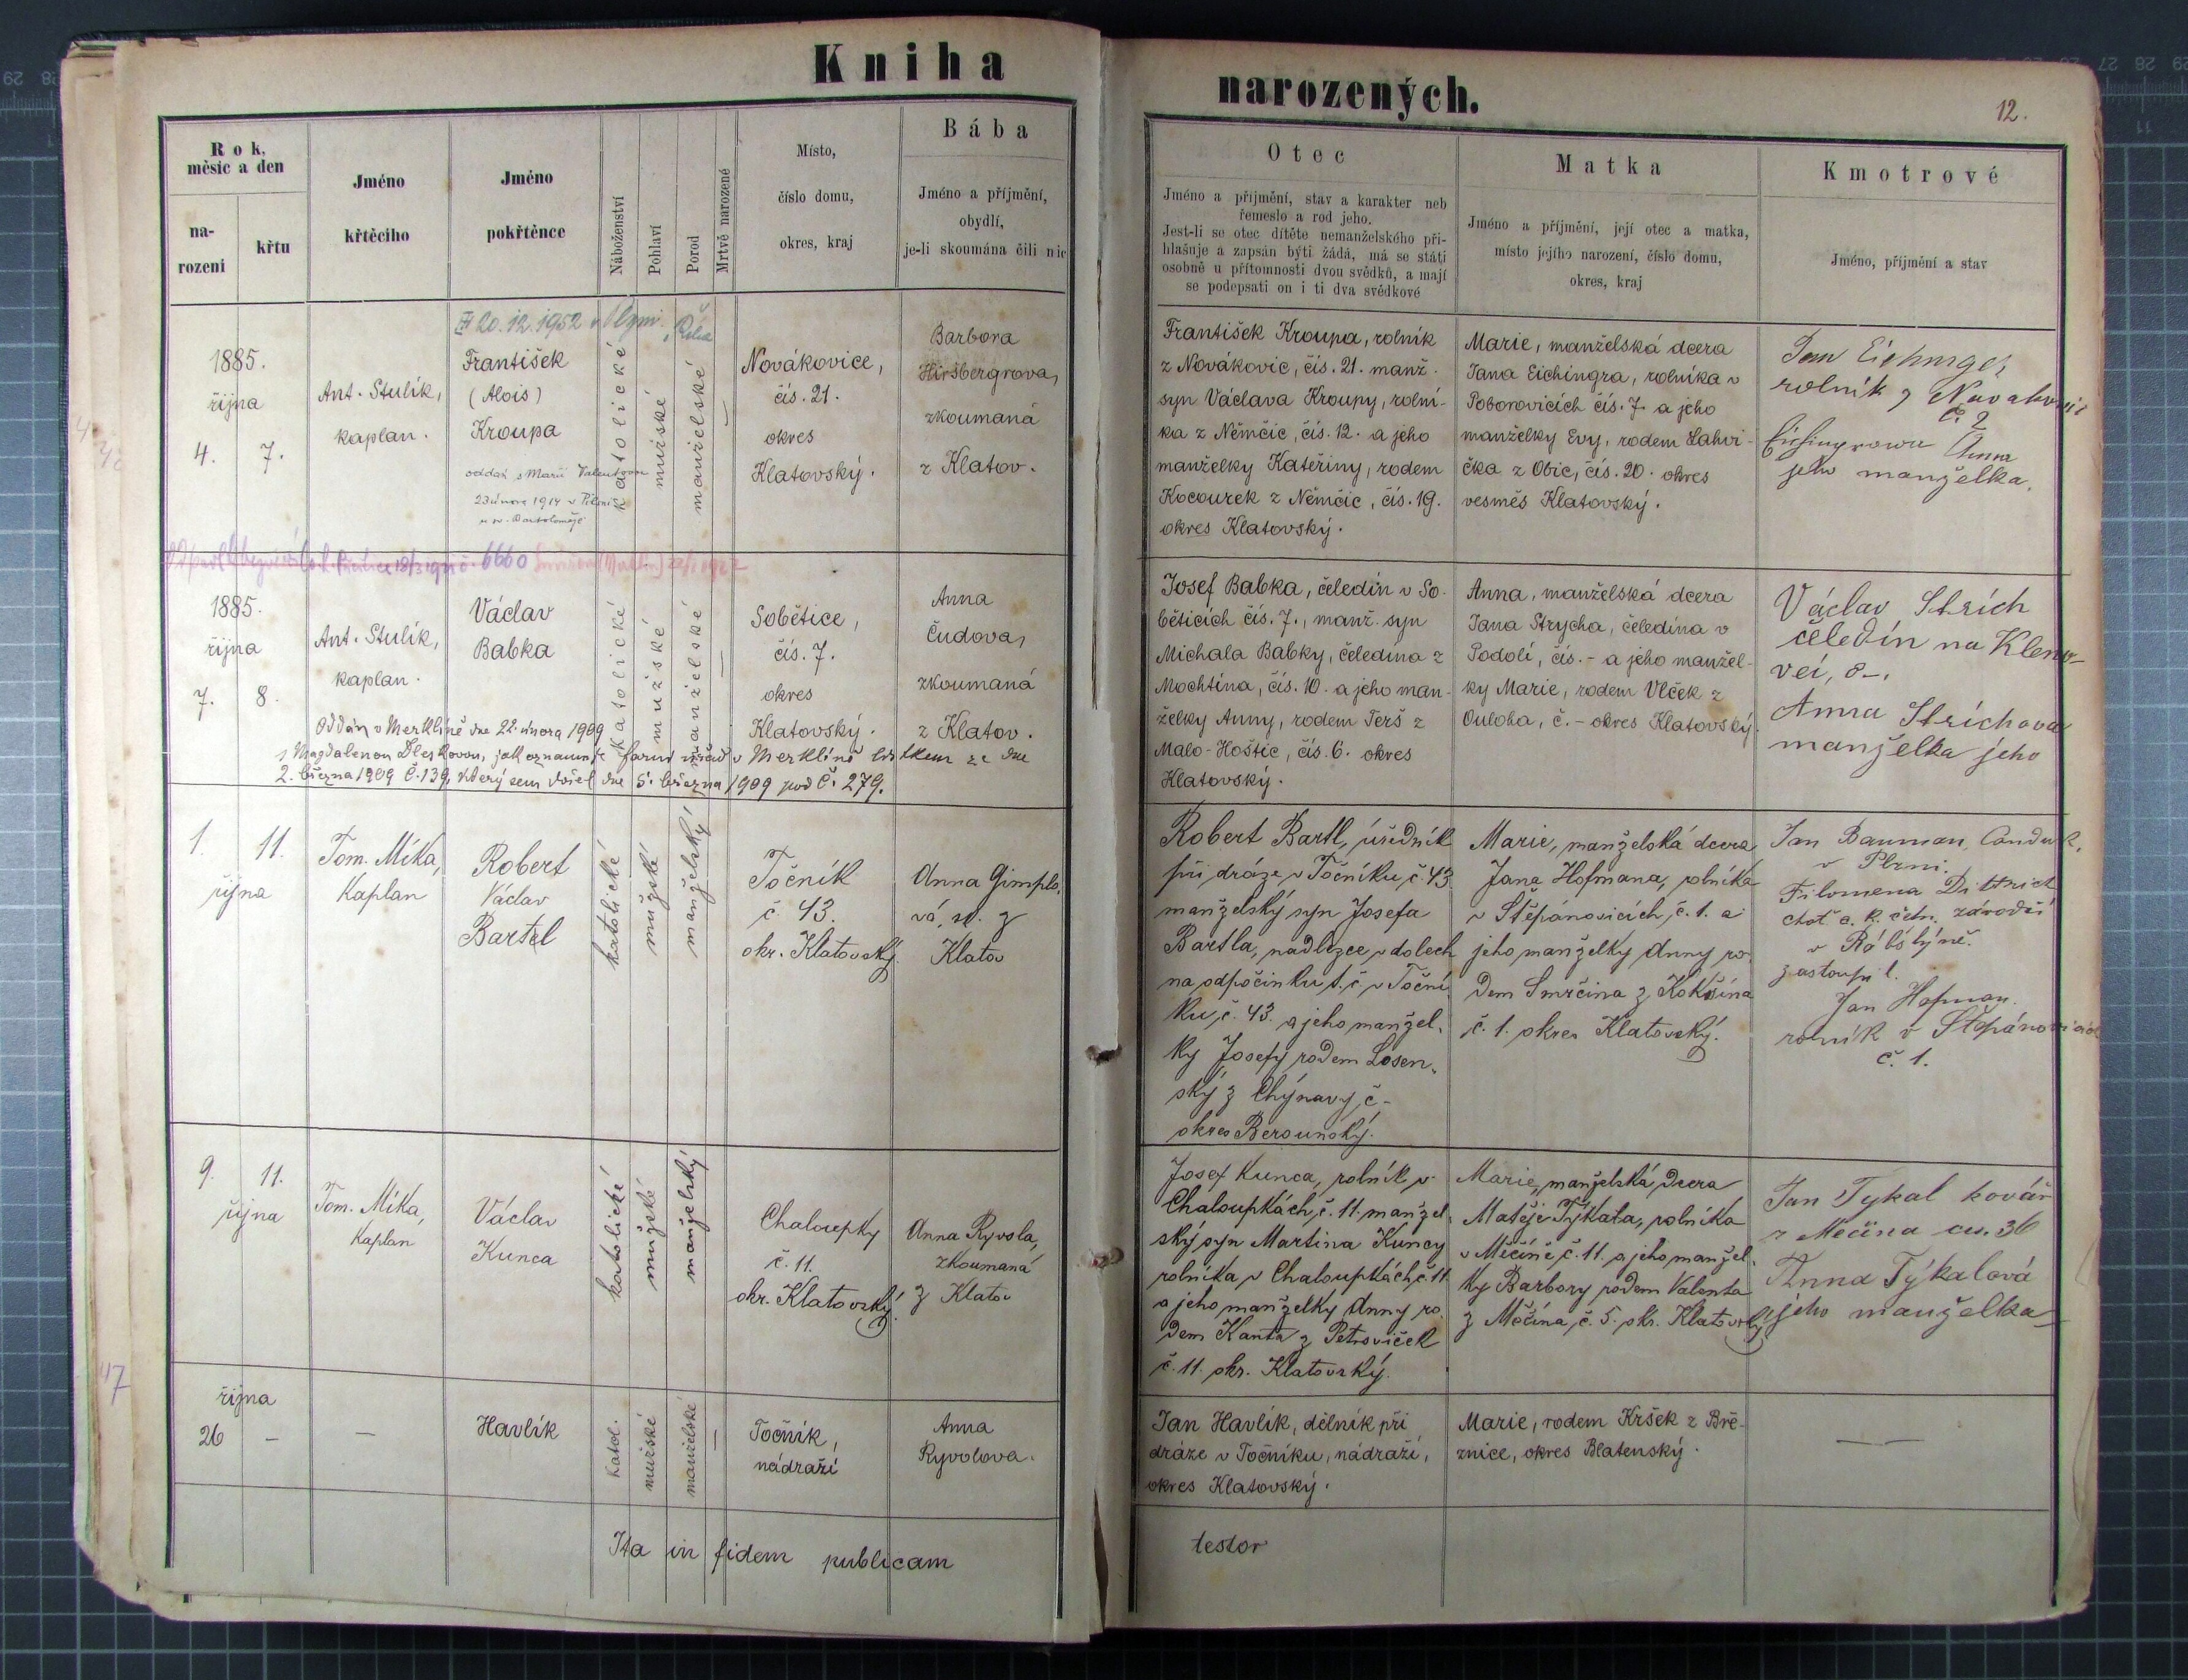 Kniha
narozených.
12.
Rok,
měsíc a den
na-
rození
křtu
Jméno
křtěcího
Jméno
pokřtěnce
Náboženství
Pohlaví
Porod
Mrtvě narozené
Místo,
číslo domu,
okres, kraj
Bába
Jméno a příjmění,
obydlí,
je-li skoumána čili nic
Otec
Jméno a přijmění, stav a karakter neb
řemeslo a rod jeho.
Jest-li se otec dítěte nemanželského při-
hlašuje a zapsán býti žádá, má se státi
osobně u přítomnosti dvou svědků, a mají
se podepsati on i ti dva svědkové
Matka
Jméno a příjmění, její otec a matka,
místo jejího narození, číslo domu,
okres, kraj
Kmotrové
Jméno, přijmění a stav
1885.
října
4. 7.
Ant. Stulík,
kaplan.
20.12.1952 v
František
(Alois)
Kroupa
oddán s Marií Valentovou
23 února 1914 v Plzni
u sv. Bartoloměje
katolické
mužské
manželské
Novákovice,
čís. 21.
okres
Klatovský.
Barbora
Hiršbergrova,
zkoumaná
z Klatov.
František Kroupa, rolník
z Novákovic, čís. 21. manž.
syn Václava Kroupy, rolní-
ka z Němčic, čís. 12. a jeho
manželky Kateřiny, rodem
Kocourek z Němčic, čís. 19.
okres Klatovský.
Marie, manželská dcera
Jana Eichingra, rolníka v
Poborovicích čís. 7. a jeho
manželky Evy, rodem Lahvi-
čka z Obic, čís. 20. okres
vesměs Klatovský.
Jan Eichinger
rolník z
č. 2
Anna
jeho manželka.
6660
1885.
října
7. 8.
Ant. Stulík,
kaplan.
Václav
Babka
katolické
mužské
manželské
Sobětice,
čís. 7.
okres
Klatovský.
Anna
Čudova,
zkoumaná
z Klatov.
Oddán v Merklíně dne 22. února 1909
s Magdalenou Dleskovou, jak oznamuje farní úřad v Merklíně lístkem ze dne
2. března 1909 č. 139, který sem došel dne 5. března 1909 pod č. 279.
Josef Babka, čeledín v So-
běticích čís. 7., manž. syn
Michala Babky, čeledína z
Mochtína, čís. 10. a jeho man-
želky Anny, rodem Terš z
Malo-Hoštic, čís. 6. okres
Klatovský.
Anna, manželská dcera
Jana Strycha, čeledína v
Podolí, čís. - a jeho manžel-
ky Marie, rodem Vlček z
Ouloha, č. - okres Klatovský.
Václav Strich
čeledín na Kleno-
vei,
Anna Strichova
manželka jeho
1. 11.
října
Tom. Míka,
Kaplan
Robert
Václav
Bartel
katolické
mužské
manželský
Točník
č. 43.
okr. Klatovský.
Anna Gimplo,
vá, z
Klatov
Robert Bartl, úředník
při dráze v Točníku, č. 43
manželský syn Josefa
Bartla, nadlozce v dolech
na odpočinku t. č. v Toční,
ku, č. 43. a jeho manžel,
ky Josefy rodem Losen,
ský z Chýnavy, č -
okres Berounský.
Marie, manželská dcera
Jana Hofmana, rolníka
v Štěpánovicích, č. 1. a
jeho manželky Anny ro-
dem Smrčina z Kokšína
č. 1. okres Klatovský.
Jan Bauman, Conduk.
v Plzni.
Filomena Dittrich
choť c. k. četn.
v
zastoupil.
Jan Hofman.
rolník v Štěpánovicích
č. 1.
9. 11.
října
Tom. Míka,
Kaplan
Václav
Kunca
katolické
mužské
manželský
Chaloupky
č. 11.
okr. Klatovský.
Anna Ryvola,
zkoumaná
z Klatov
Josef Kunca, rolník v
Chaloupkách, č. 11. manžel,
ský syn Martina Kuncy
rolníka v Chaloupkách, č. 11
a jeho manželky Anny ro,
dem Kanta z Petroviček
č. 11. okr. Klatovský.
Marie, manželská dcera
Matěje Týkala, rolníka
v Měčíně č. 11. a jeho manžel,
ky Barbory rodem Valenta
z Měčína, č. 5. okr. Klatovský
Jan Tykal kovář
z Mečina čís. 36
Anna Týkalová
jeho manželka
47
října
26 -
—
Havlík
katol.
mužské
manželské
Točník,
nádraží
Anna
Ryvolova.
Jan Havlík, dělník při
dráze v Točníku, nádraží,
okres Klatovský.
Marie, rodem Kršek z Bře-
znice, okres Blatenský.
Ita in fidem publicam
testor